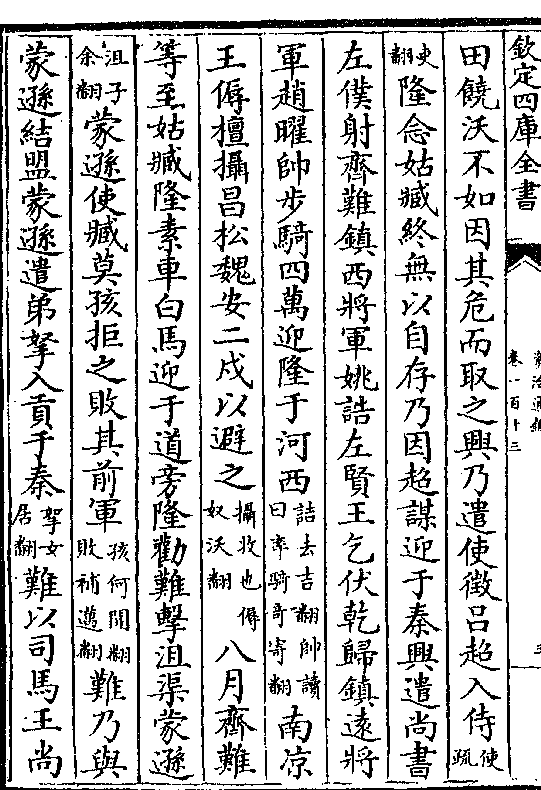 欽定四庫全書
資治通鑑
卷一百十三
田饒沃不如因其危而取之興乃遣使徵呂超入侍使疏
吏翻隆念姑臧終無以自存乃因超謀迎于秦興遣尚書
左僕射齊難鎮西將軍姚詰左賢王乞伏乾歸鎮遠將
軍趙曜帥步騎四萬迎隆于河西詰去吉翻帥讀曰率騎奇寄翻南涼
王傉檀攝昌松魏安二戍以避之攝收也傉奴沃翻八月齊難
等至姑臧隆素車白馬迎于道旁隆勸難擊沮渠蒙遜
沮子余翻蒙遜使臧莫孩拒之敗其前軍孩何開翻敗補邁翻難乃與
蒙遜結盟蒙遜遣弟挐入貢于秦挐女居翻難以司馬王尚